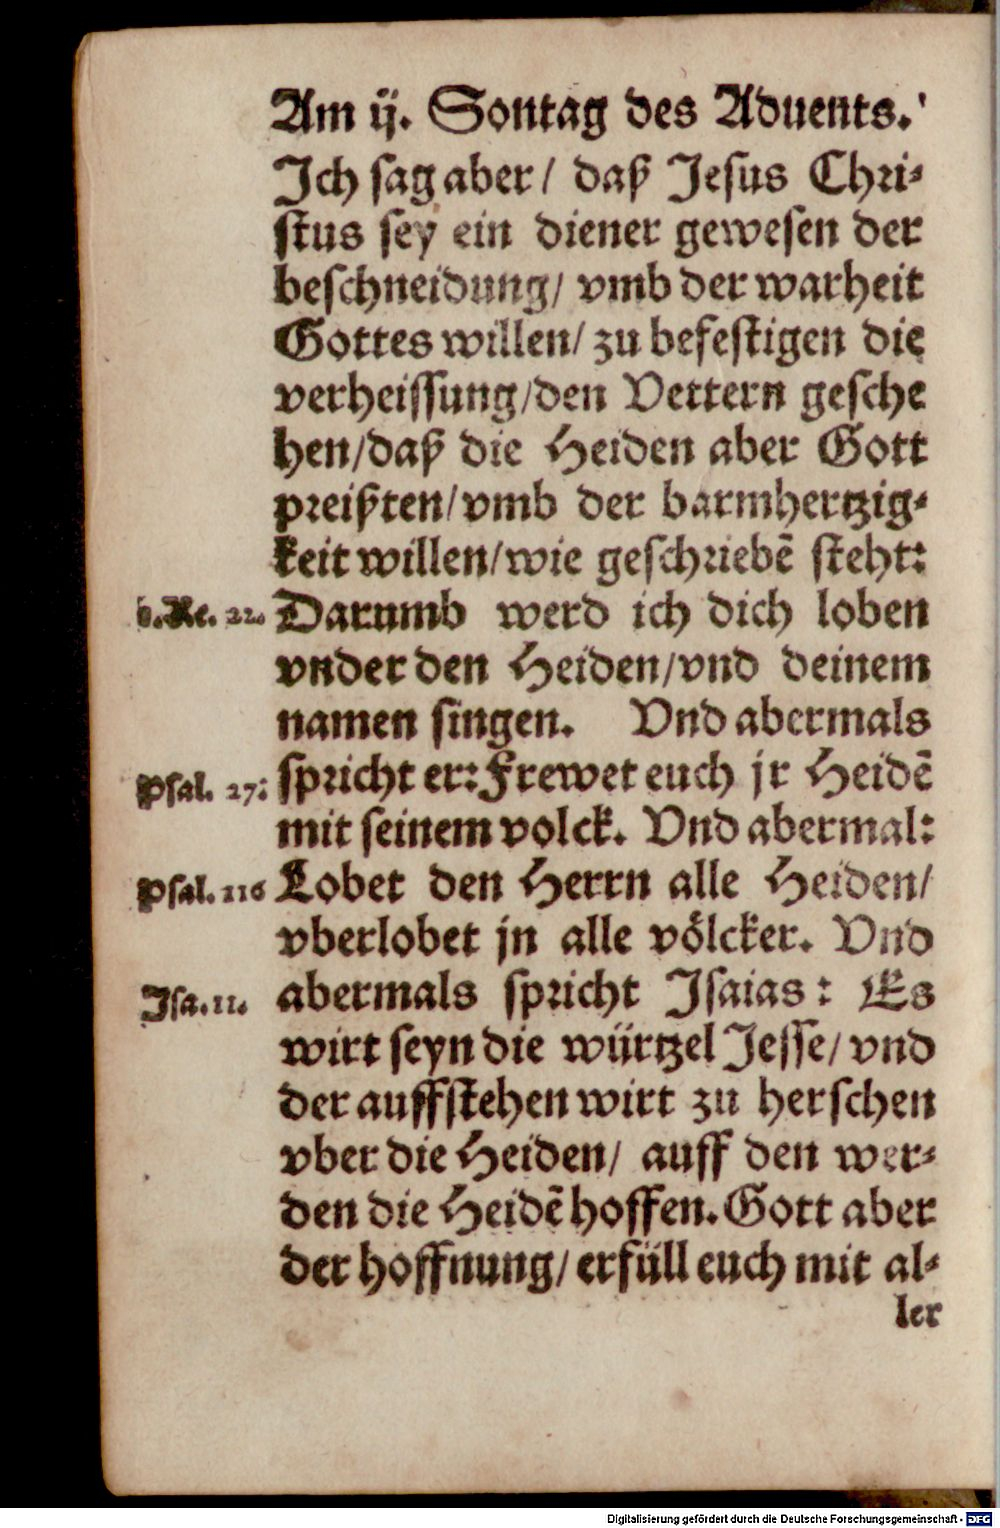 Am ij. Sontag des Aduents.
Ich sag aber/ daß Jesus Chri-
stus sey ein diener gewesen der
beschneidung/ vmb der warheit
Gottes willen/ zu befestigen die
verheissung/den Vettern gesche
hen/daß die Heiden aber Gott
preißten/vmb der barmhertzig-
keit willen/wie geschriebē steht:
Re. 22. Darumb werd ich dich loben
vnder den Heiden/vnd deinem
namen singen. Vnd abermals
Psal. 27: spricht er: Frewet euch jr Heidē
mit seinem volck. Vnd abermal:
Psal. 116 Lobet den Herrn alle Heiden/
vberlobet jn alle völcker. Vnd
Isa. 11. abermals spricht Isaias: Es
wirt seyn die würtzel Jesse/ vnd
der auffstehen wirt zu herschen
vber die Heiden/ auff den wer-
den die Heidē hoffen. Gott aber
der hoffnung/ erfüll euch mit al-
ler
Digitalisierung gefördert durch die Deutsche Forschungsgemeinschaft - DFG